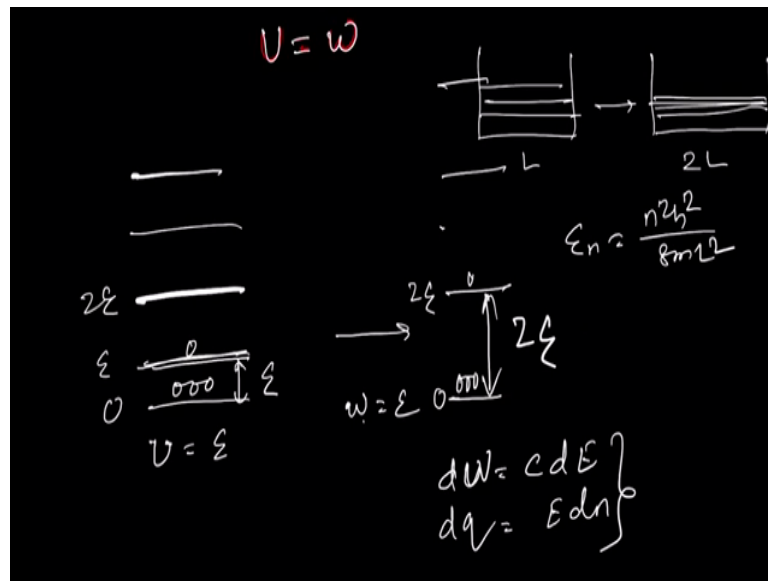 U = W
L
2L
εn = n²h² / 8mL²
2ε
ε 0
0 000 ε
U = ε
2ε 0
2ε
w = ε 0 000
dW = cdE
dq = Edn